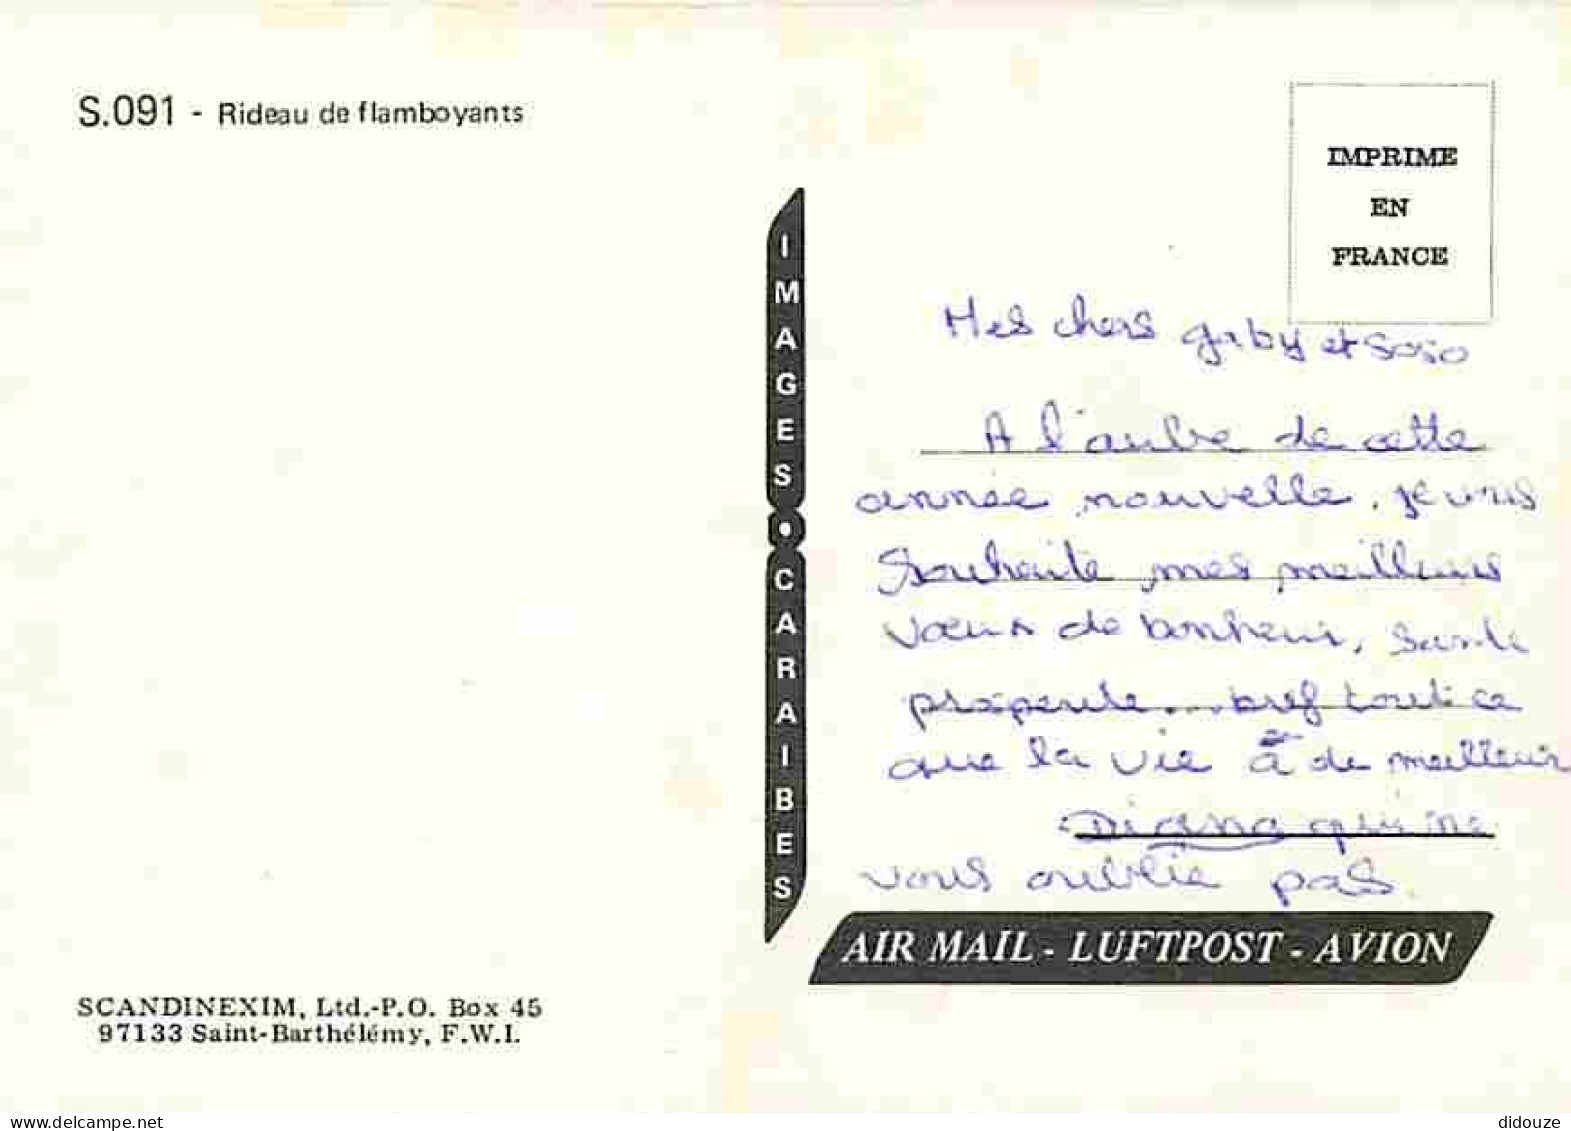 S.091 - Rideau de flamboyants
IMPRIME
EN
FRANCE
IMAGES • CARAIBES
Mes chers gaby et soso
A l'aube de cette
année nouvelle, je vous
souhaite mes meilleurs
vœux de bonheur, santé
prospérité... bref tout ce
que la vie à de meilleur
Diana qui ne
vous oublie pas.
AIR MAIL - LUFTPOST - AVION
SCANDINEXIM, Ltd.-P.O. Box 45
97133 Saint-Barthélémy, F.W.I.
www.delcampe.net
didouze